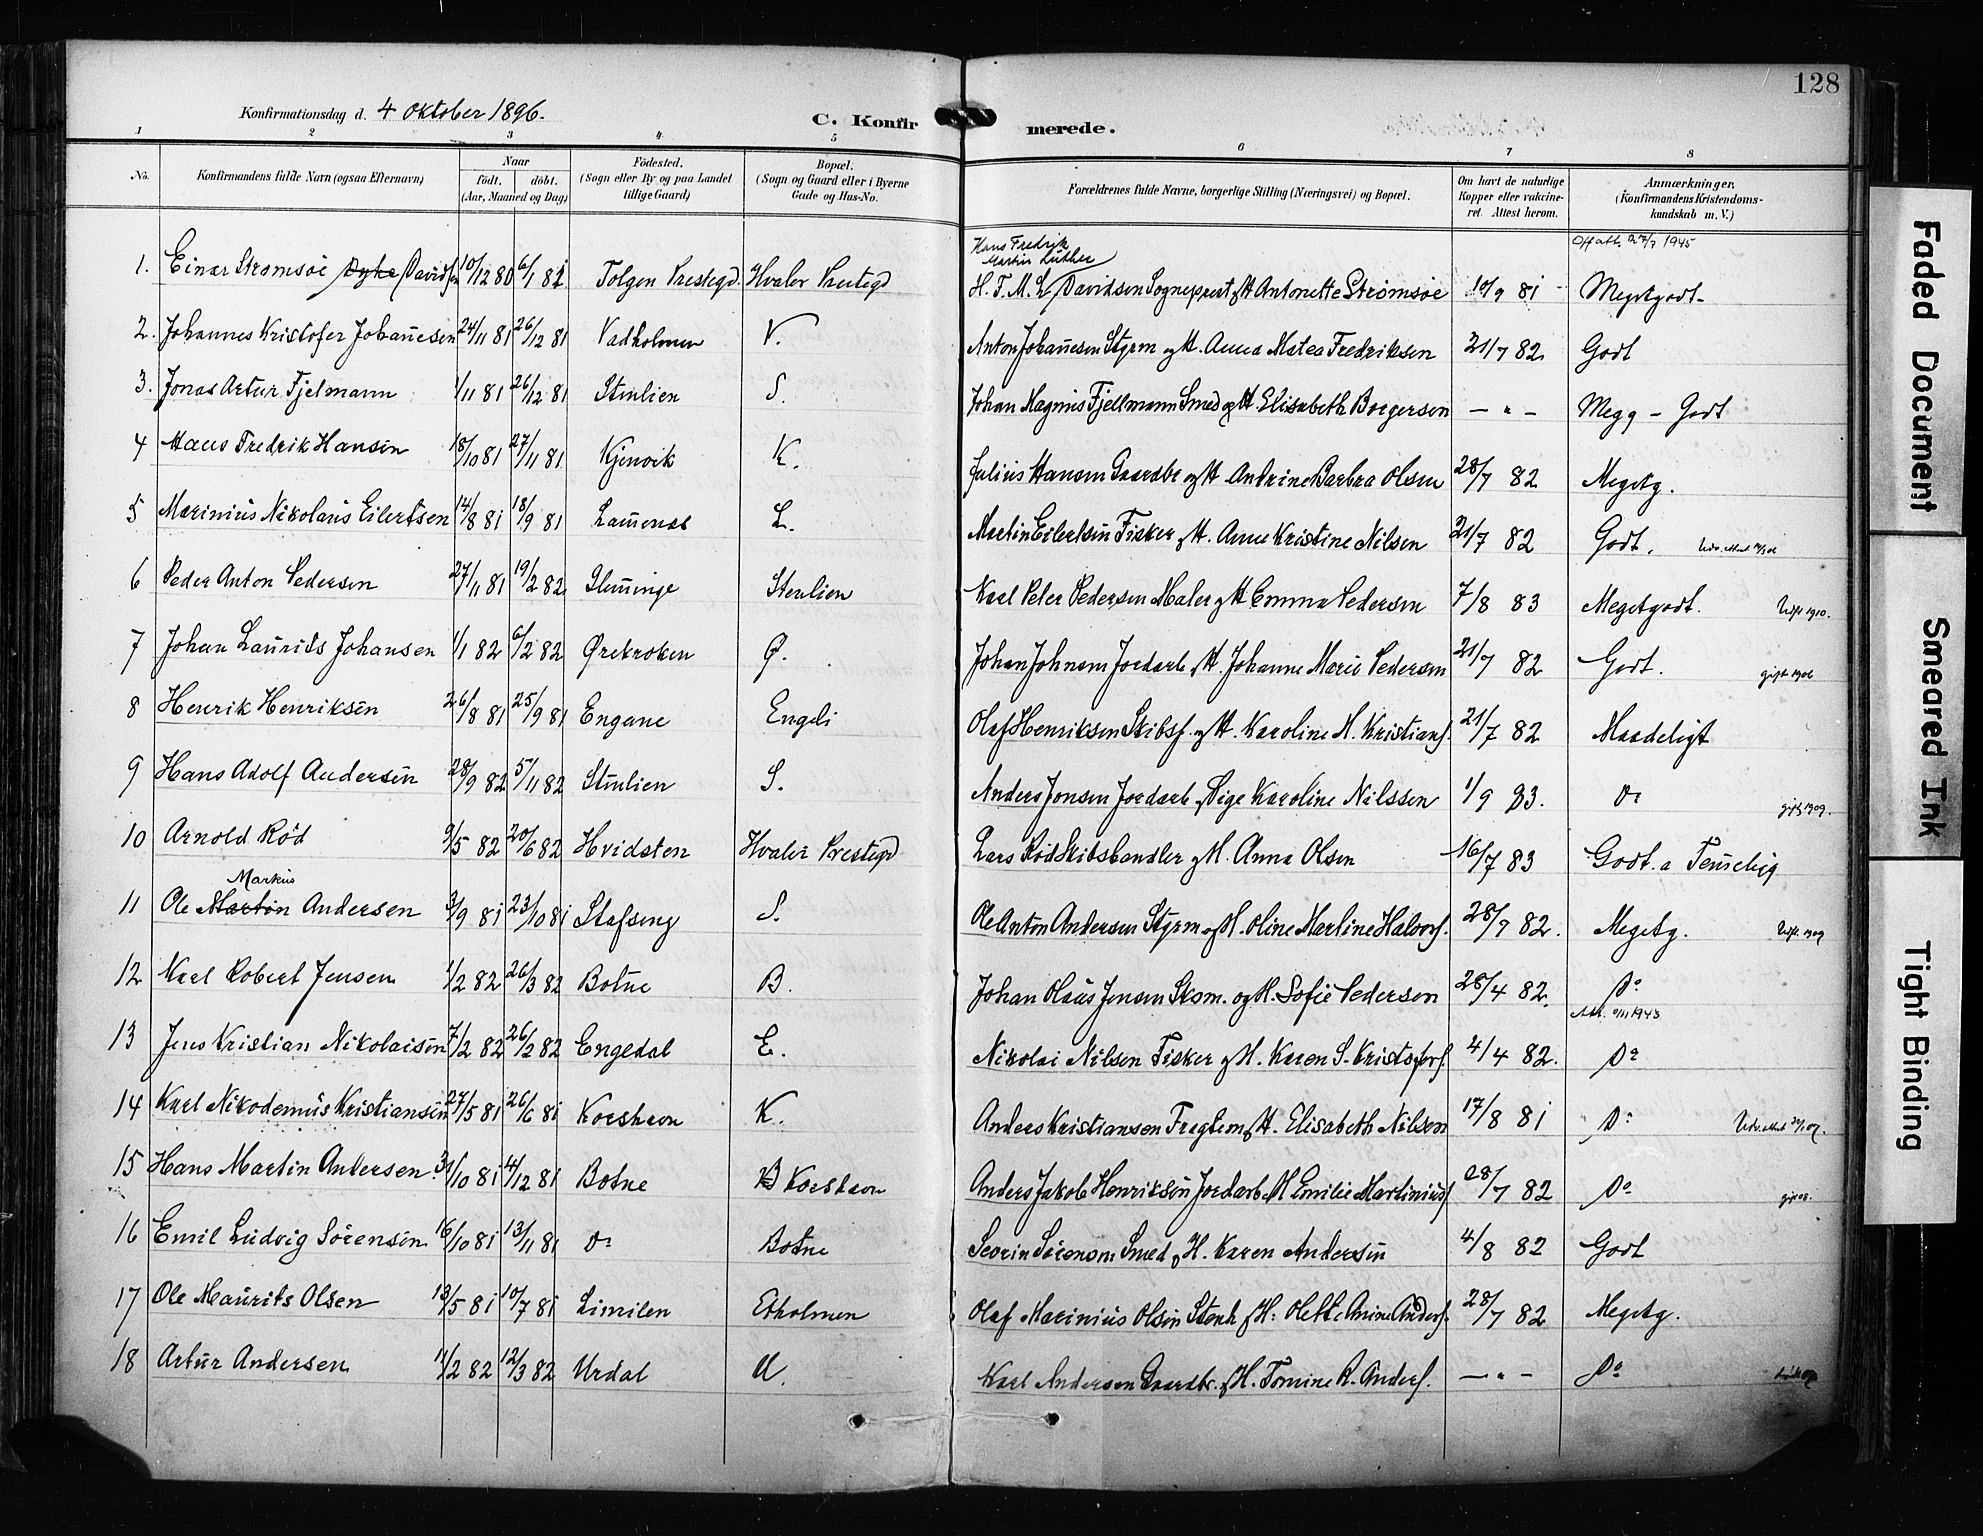 128
Konfirmationsdag d. 4 Oktober 1896.
C. Konfirmerede.
1 2 3 4 5 6 7 8
No. Konfirmandens fulde Navn (ogsaa Efternavn) Naar født. døbt. (Aar, Maaned og Dag) Fødested. (Sogn eller By og paa Landet tillige Gaard) Bopæl. (Sogn og Gaard eller i Byerne Gade og Hus-No. Forældrenes fulde Navne, borgerlige Stilling (Næringsvei) og Bopæl. Om havt de naturlige Kopper eller vakcineret. Attest herom. Anmærkninger. (Konfirmandens Kristendomskundskab m. V.)
Hans Fredrik Martin Luther
1. Einar Strømsøe Dyhe Davidsen 10/12 80 6/1 81 Tolgen Prestegd. Hvaler Prestegd H. F. M. L. Davidsen Sogneprest og H Antonette Strømsøe 10/9 81 Megetgodt. Off att. 27/7 1945
2. Johannes Kristofer Johanesen 24/11 81 26/12 81 Vadholmen V. Anton Johanesen Styrm og H. Anna Matea Fredriksen 21/7 82 Godt
3. Jonas Artur Fjelmann 1/11 81 26/12 81 Stenlien S. Johan Magnus Fjellmann Smed og H Elisabeth Borgersen — " — Megg - Godt
4 Hans Fredrik Hansen 18/10 81 27/11 81 Kjenvik K. Julius Hansen Gaardbr og H Andrine Barbra Olsen 28/7 82 Megetg.
5 Marinius Nikolaus Eilertsen 14/8 81 18/9 81 Lauenes L. Martin Eilertsen Fisker og H. Anne Kristine Nilsen 21/7 82 Godt.
6 Peder Anton Pedersen 27/11 81 19/2 82 Glemminge Stenlien Karl Peter Pedersen Maler og H Emma Pedersen 7/8 83 Megetgodt. Udft 1910.
7 Johan Laurits Johansen 1/1 82 6/2 82 Ørekroken Ø. Johan Johnsen Jordarb og H. Johanne Marie Pedersen 21/7 82 Godt. gift 1906
8 Henrik Henriksen 26/8 81 25/9 81 Engane Engeli Olaf Henriksen Skibsf. og H. Karoline M. Kristians. 21/7 82 Maadeligt
9 Hans Adolf Andersen 28/9 82 5/11 82 Stenlien S. Anders Jonsen Jordarb og Pige Karoline Nilssen 1/9 83. Do gift 1909.
10 Arnold Rød 9/5 82 20/6 82 Hvidsten Hvaler Prestegd Lars Rød Skibshandler og H. Anna Olsen 16/7 83 Godt. a
Markus
11 Ole Martin Andersen 3/9 81 23/10 81 Stafseng S. Ole Anton Andersen Styrm og H. Oline Marline Halvors. 28/7 82. Megetg. Udft. 1909
12 Karl Robert Jensen 1/2 82 26/3 82 Botne B. Johan Olaus Jensen Skom. og H. Sofie Pedersen 28/4 82. Do
13 Jens Kristian Nikolaisen 7/2 82 26/2 82 Engedal E. Nikolai Nilsen Fisker og H. Karen S. Kristofers. 4/4 82. Do
14 Karl Nikodemus Kristiansen 27/5 81 26/6 81 Korshavn K. Anders Kristiansen Fragtem og H. Elisabeth Nilsen 17/8 81 Do
15 Hans Martin Andersen 31/10 81 4/12 81 Botne B Korshavn Anders Jakob Henriksen Jordarb H Emilie Martinius. 28/7 82 Do
16 Emil Ludvig Sørensen 16/10 81 13/11 81 Do Botne Severin Sørensen Smed og H. Karen Andersen 4/8 82 Godt
17 Ole Maurits Olsen 13/5 81 10/7 81 Limilen Etholmen Olaf Marinius Olsen Stenh og H: Olette Anine Anders. 28/7 82 Megetg.
18 Artur Andersen 11/2 82 12/3 82 Urdal U. Karl Andersen Gaardbr. og H. Tomine R. Anders. — " — Do
Faded Document
Smeared Ink
Tight Binding